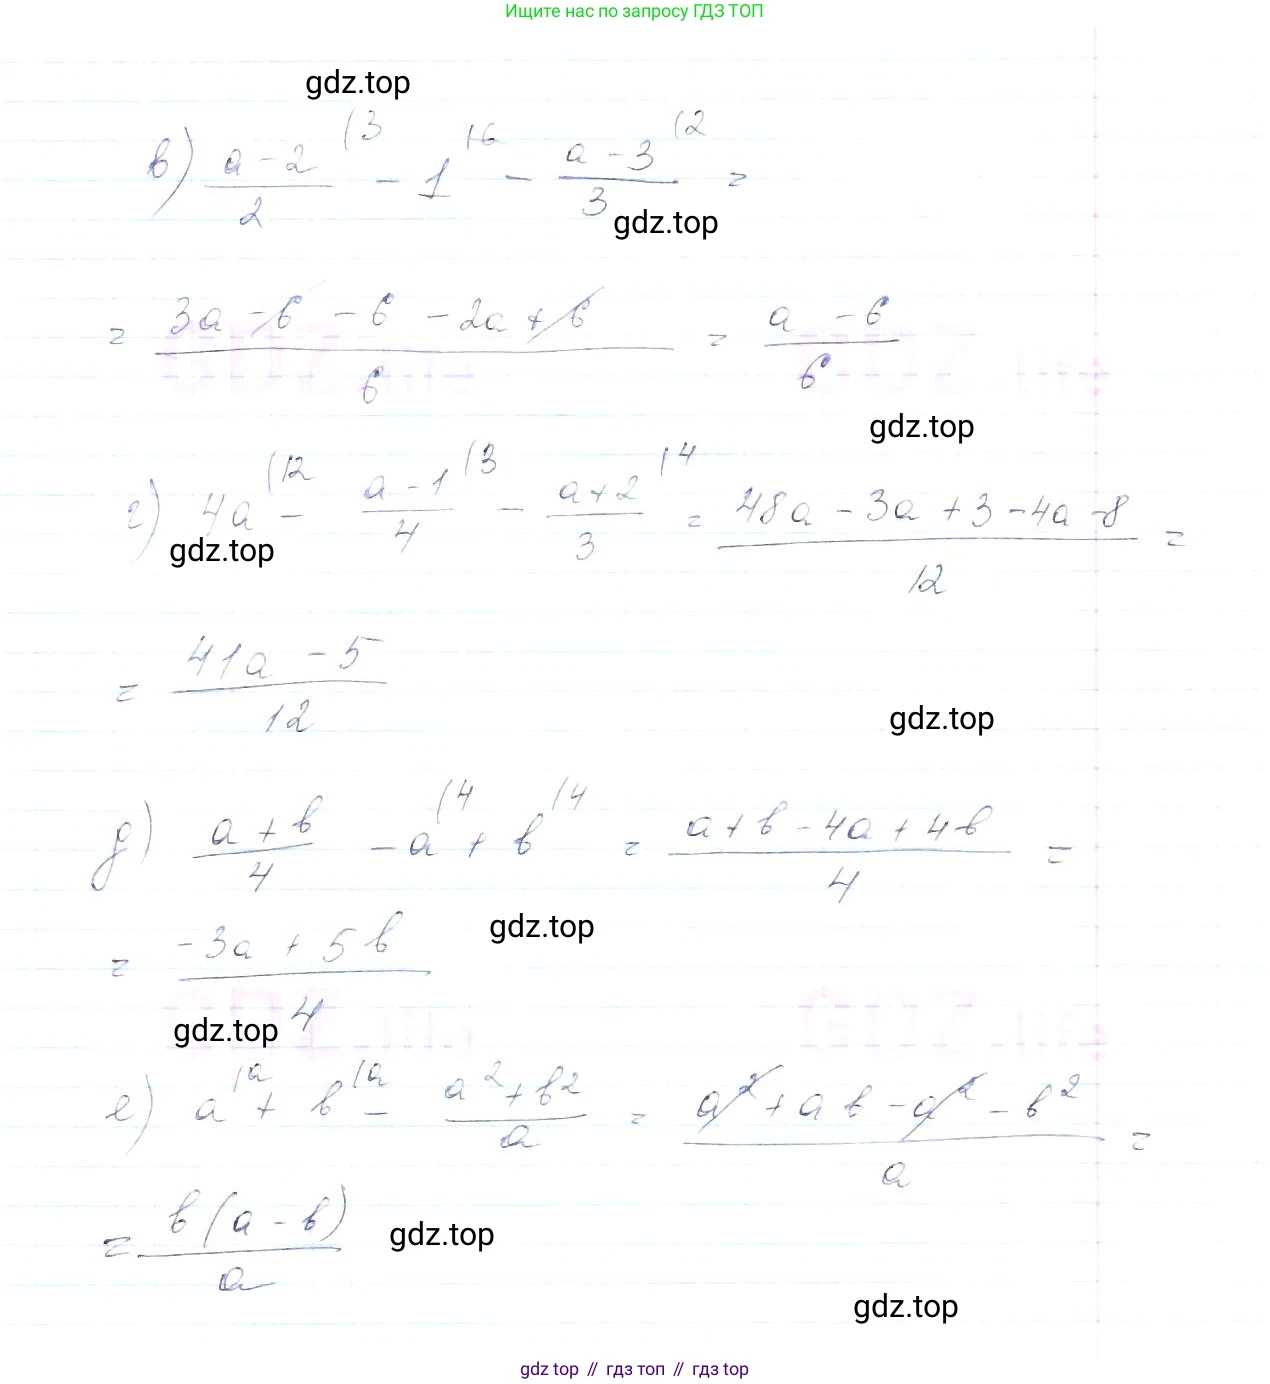 Ищите нас по запросу ГДЗ ТОП
gdz.top
в) (a-2)/2 (3 - 1 (6 - (a-3)/3 (2 =
gdz.top
= (3a - 6 - 6 - 2a + 6)/6 = (a - 6)/6
gdz.top
г) 4a (12 - (a-1)/4 (3 - (a+2)/3 (4 = (48a - 3a + 3 - 4a - 8)/12 =
gdz.top
= (41a - 5)/12
gdz.top
д) (a+b)/4 - a (4 + b (4 = (a + b - 4a + 4b)/4 =
= (-3a + 5b)/4
gdz.top
gdz.top
е) a (a + b (a - (a² + b²)/a = (a² + ab - a² - b²)/a =
= b(a - b)/a
gdz.top
gdz.top
gdz top // гдз топ // гдз top